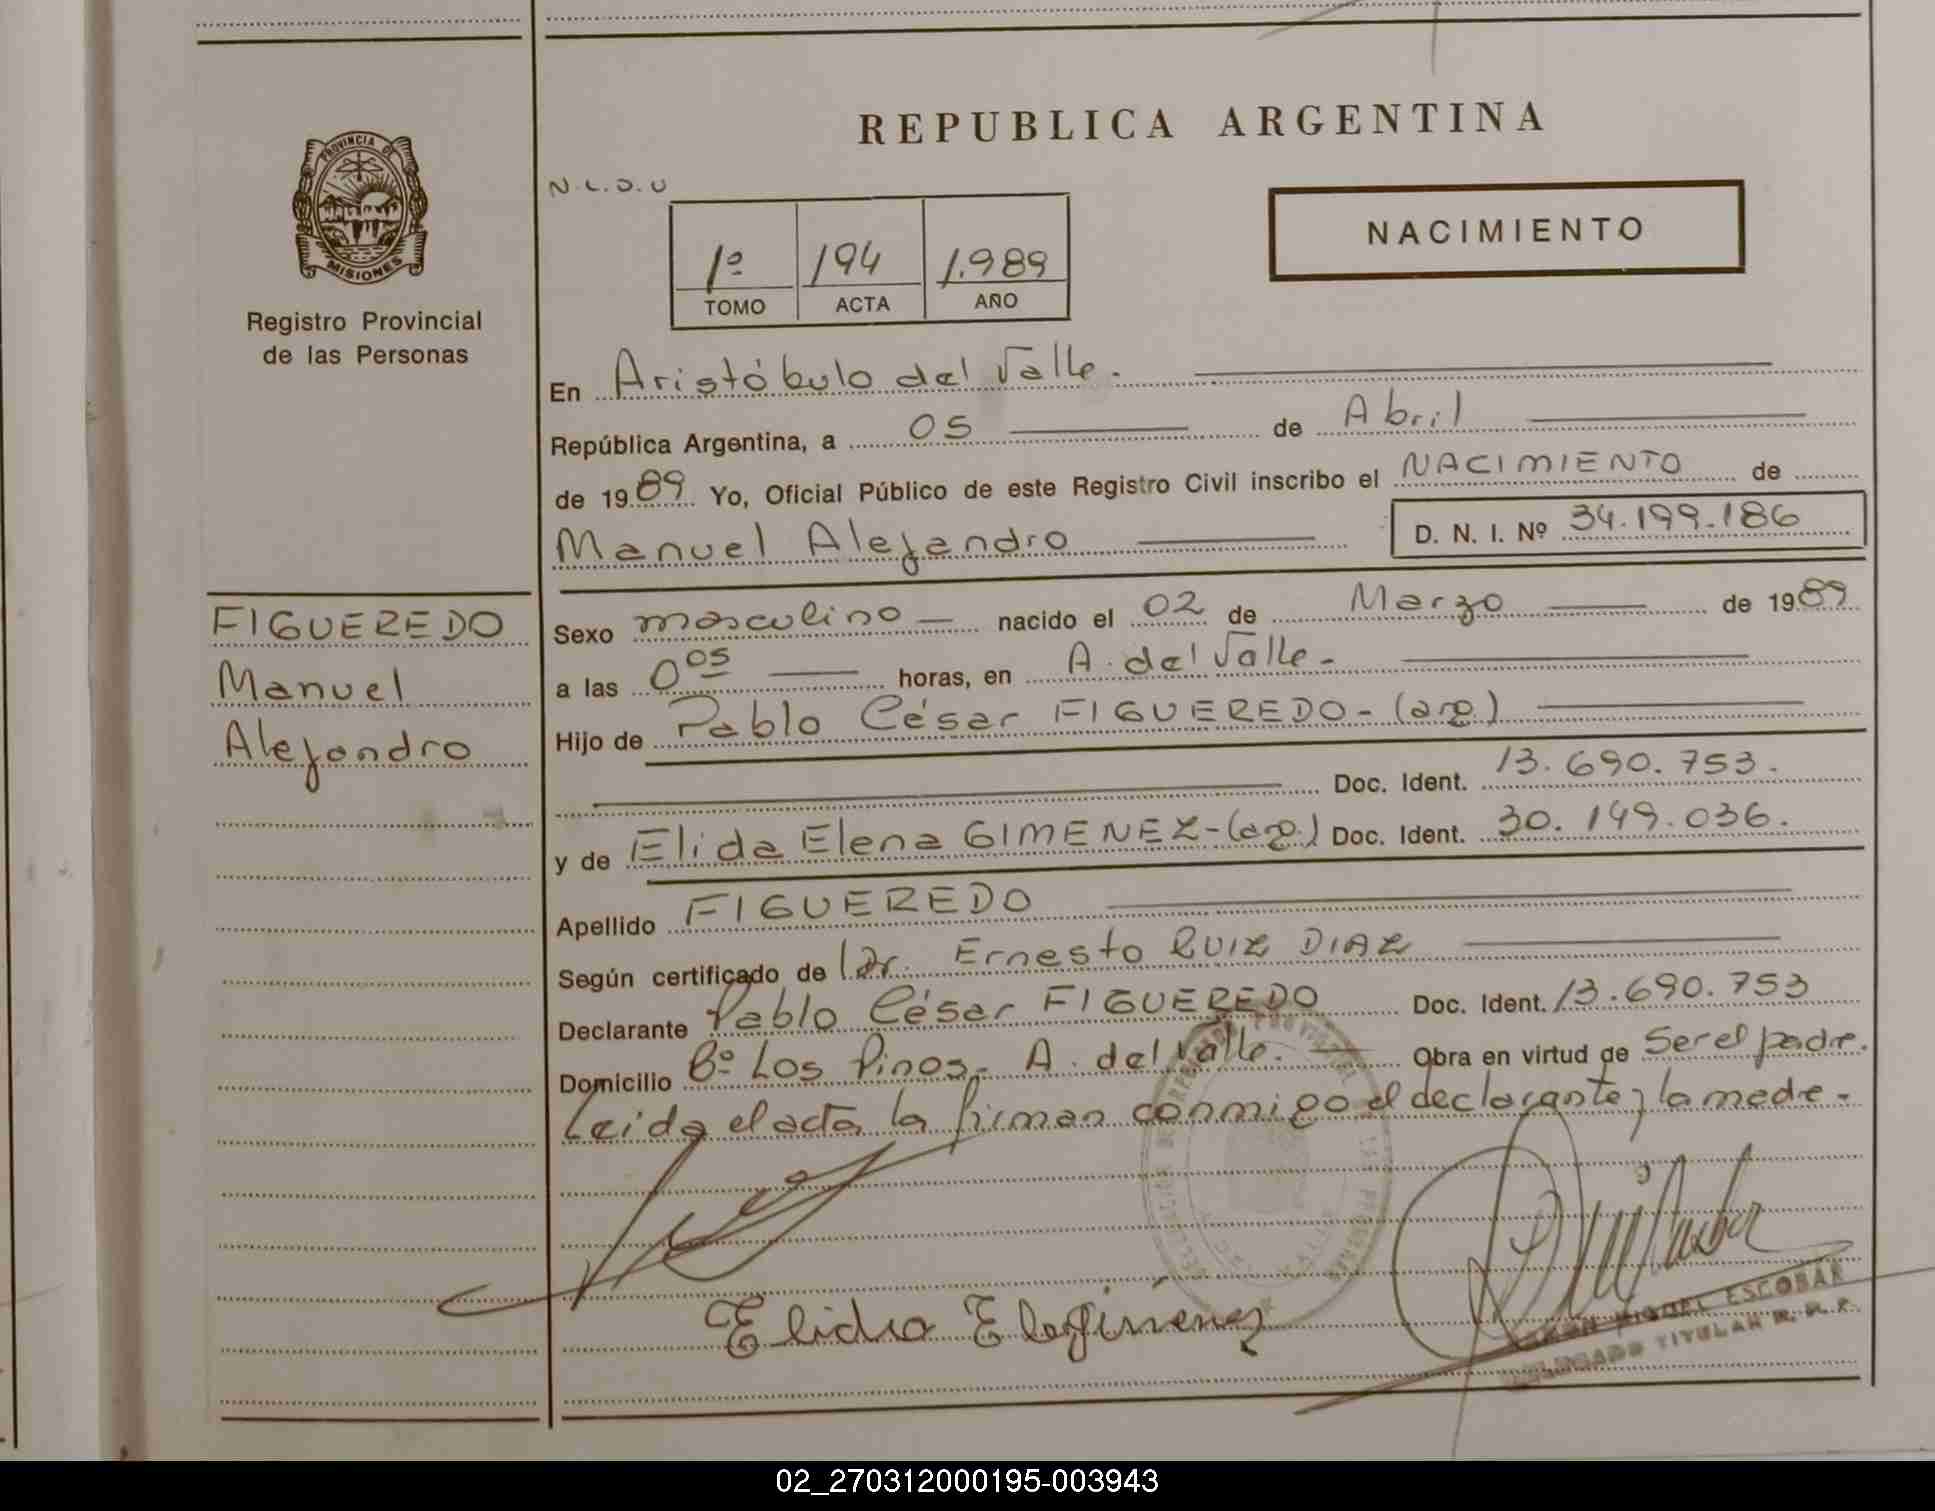 REPUBLICA ARGENTINA
PROVINCIA DE
MISIONES
Registro Provincial
de las Personas
N.L.D.U
1º 194 1.989
TOMO ACTA AÑO
NACIMIENTO
En Aristóbulo del Valle.
República Argentina, a 05 de Abril
de 1989 Yo, Oficial Público de este Registro Civil inscribo el NACIMIENTO de
Manuel Alejandro D. N. I. Nº 34.199.186
FIGUEREDO
Manuel
Alejandro
Sexo masculino nacido el 02 de Marzo de 1989
a las 0 05 horas, en A. del Valle.
Hijo de Pablo César FIGUEREDO - (arg.)
Doc. Ident. 13.690.753.
y de Elida Elena GIMENEZ - (arg.) Doc. Ident. 30.149.036.
Apellido FIGUEREDO
Según certificado de Dr. Ernesto RUIZ DIAZ
Declarante Pablo César FIGUEREDO Doc. Ident. 13.690.753
Domicilio Bº Los Pinos. A. del Valle. Obra en virtud de Ser el padre.
Leida el acta la firman conmigo el declarante y la madre.
Elidia Giménez
MIGUEL ESCOBAR
DELEGADO TITULAR R. P. P.
02_270312000195-003943